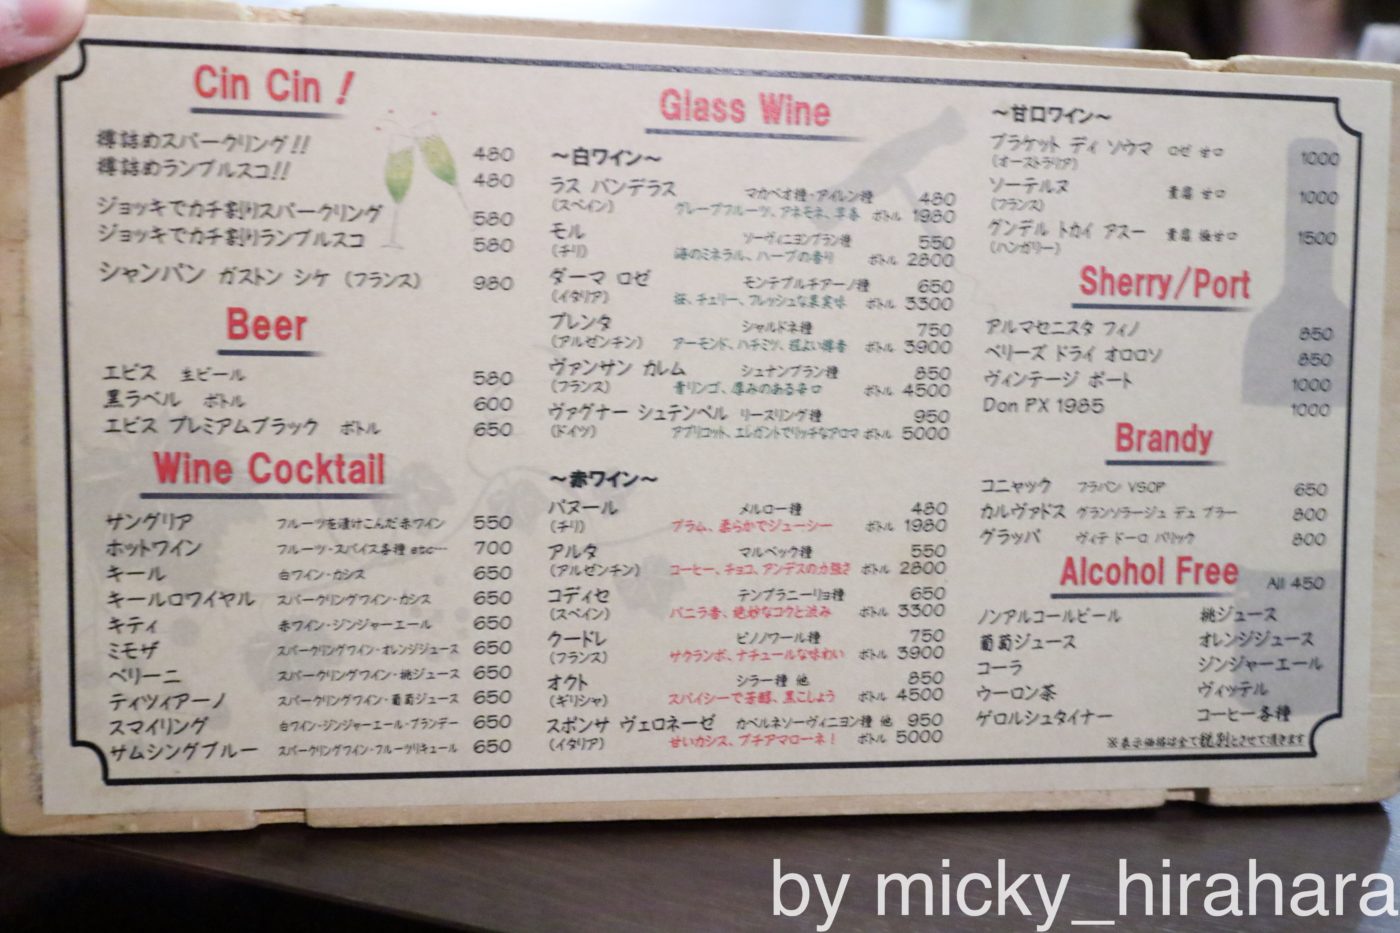 Cin Cin !
樽詰めスパークリング!! 480
樽詰めランブルスコ!! 480
ジョッキでカチ割りスパークリング 580
ジョッキでカチ割りランブルスコ 580
シャンパン ガストン シケ (フランス) 980
Beer
エビス 生ビール 580
黒ラベル ボトル 600
エビス プレミアムブラック ボトル 650
Wine Cocktail
サングリア フルーツを漬けこんだ赤ワイン 550
ホットワイン フルーツ・スパイス各種 etc… 700
キール 白ワイン・カシス 650
キールロワイヤル スパークリングワイン・カシス 650
キティ 赤ワイン・ジンジャーエール 650
ミモザ スパークリングワイン・オレンジジュース 650
ベリーニ スパークリングワイン・桃ジュース 650
ティツィアーノ スパークリングワイン・葡萄ジュース 650
スマイリング 白ワイン・ジンジャーエール・ブランデー 650
サムシングブルー スパークリングワイン・フルーツリキュール 650
Glass Wine
～白ワイン～
ラス バンデラス マカベオ種・アイレン種 480
(スペイン) グレープフルーツ、アネモネ、草香 ボトル 1980
モル ソーヴィニヨンブラン種 550
(チリ) 海のミネラル、ハーブの香り ボトル 2800
ダーマ ロゼ モンテプルチアーノ種 650
(イタリア) 桜、チェリー、フレッシュな果実味 ボトル 3300
ブレンタ シャルドネ種 750
(アルゼンチン) アーモンド、ハチミツ、程よい樽香 ボトル 3900
ヴァンサン カレム シュナンブラン種 850
(フランス) 青リンゴ、厚みのある辛口 ボトル 4500
ヴァグナー シュテンペル リースリング種 950
(ドイツ) アプリコット、エレガントでリッチなアロマ ボトル 5000
～赤ワイン～
パヌール メルロー種 480
(チリ) プラム、柔らかでジューシー ボトル 1980
アルタ マルベック種 550
(アルゼンチン) コーヒー、チョコ、アンデスの力強さ ボトル 2800
コディセ テンプラニーリョ種 650
(スペイン) バニラ香、絶妙なコクと渋み ボトル 3300
クードレ ピノノワール種 750
(フランス) サクランボ、ナチュールな味わい ボトル 3900
オクト シラー種 他 850
(ギリシャ) スパイシーで芳醇、黒こしょう ボトル 4500
スポンサ ヴェロネーゼ カベルネソーヴィニヨン種 他 950
(イタリア) 甘いカシス、プチアマローネ! ボトル 5000
～甘口ワイン～
ブラケット ディ ソウマ ロゼ 甘口 1000
(オーストラリア)
ソーテルヌ 貴腐 甘口 1000
(フランス)
グンデル トカイ アスー 貴腐 極甘口 1500
(ハンガリー)
Sherry/Port
アルマセニスタ フィノ 850
ベリーズ ドライ オロロソ 850
ヴィンテージ ポート 1000
Don PX 1985 1000
Brandy
コニャック フラパン VSOP 650
カルヴァドス グランソラージュ デュ ブラー 800
グラッパ ヴィテ ドーロ バリック 800
Alcohol Free All 450
ノンアルコールビール 桃ジュース
葡萄ジュース オレンジジュース
コーラ ジンジャーエール
ウーロン茶 ヴィッテル
ゲロルシュタイナー コーヒー各種
※表示価格は全て税別とさせて頂きます
by micky_hirahara